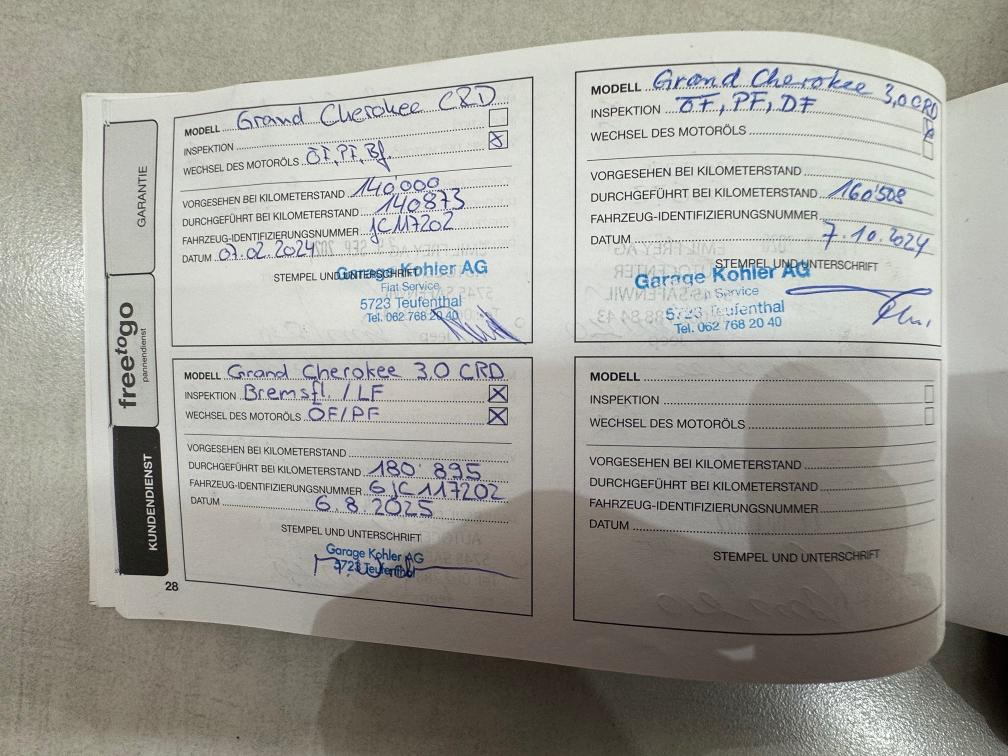 GARANTIE
freetogo
pannendienst
KUNDENDIENST
MODELL Grand Cherokee CRD
INSPEKTION
WECHSEL DES MOTORÖLS ÖF, PF, Bf.
VORGESEHEN BEI KILOMETERSTAND 140'000
DURCHGEFÜHRT BEI KILOMETERSTAND 140873
FAHRZEUG-IDENTIFIZIERUNGSNUMMER JC117202
DATUM 07.02.2024
STEMPEL UND UNTERSCHRIFT
Garage Kohler AG
Fiat Service
5723 Teufenthal
Tel. 062 768 20 40
MODELL Grand Cherokee 3,0 CRD
INSPEKTION ÖF, PF, DF
WECHSEL DES MOTORÖLS
VORGESEHEN BEI KILOMETERSTAND
DURCHGEFÜHRT BEI KILOMETERSTAND 160'508
FAHRZEUG-IDENTIFIZIERUNGSNUMMER
DATUM 7.10.2024
STEMPEL UND UNTERSCHRIFT
Garage Kohler AG
Service
5723 Teufenthal
Tel. 062 768 20 40
MODELL Grand Cherokee 3.0 CRD
INSPEKTION Bremsfl. / LF
WECHSEL DES MOTORÖLS ÖF/PF
VORGESEHEN BEI KILOMETERSTAND
DURCHGEFÜHRT BEI KILOMETERSTAND 180'895
FAHRZEUG-IDENTIFIZIERUNGSNUMMER GJC117202
DATUM 6.8.2025
STEMPEL UND UNTERSCHRIFT
Garage Kohler AG
5723 Teufenthal
MODELL
INSPEKTION
WECHSEL DES MOTORÖLS
VORGESEHEN BEI KILOMETERSTAND
DURCHGEFÜHRT BEI KILOMETERSTAND
FAHRZEUG-IDENTIFIZIERUNGSNUMMER
DATUM
STEMPEL UND UNTERSCHRIFT
28